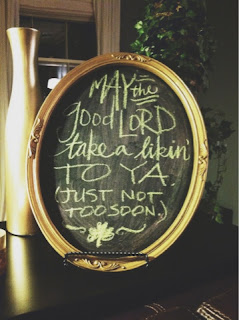 MAY the
good LORD
take a likin'
TO YA.
(JUST NOT
TOO SOON.)